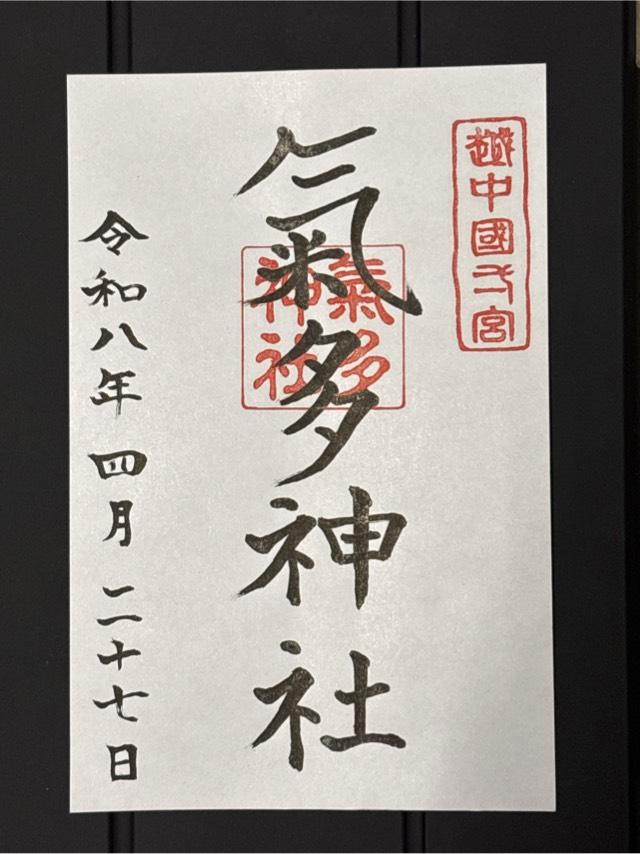 越中國弌宮
氣多神社
氣多
神社
令和八年四月二十七日